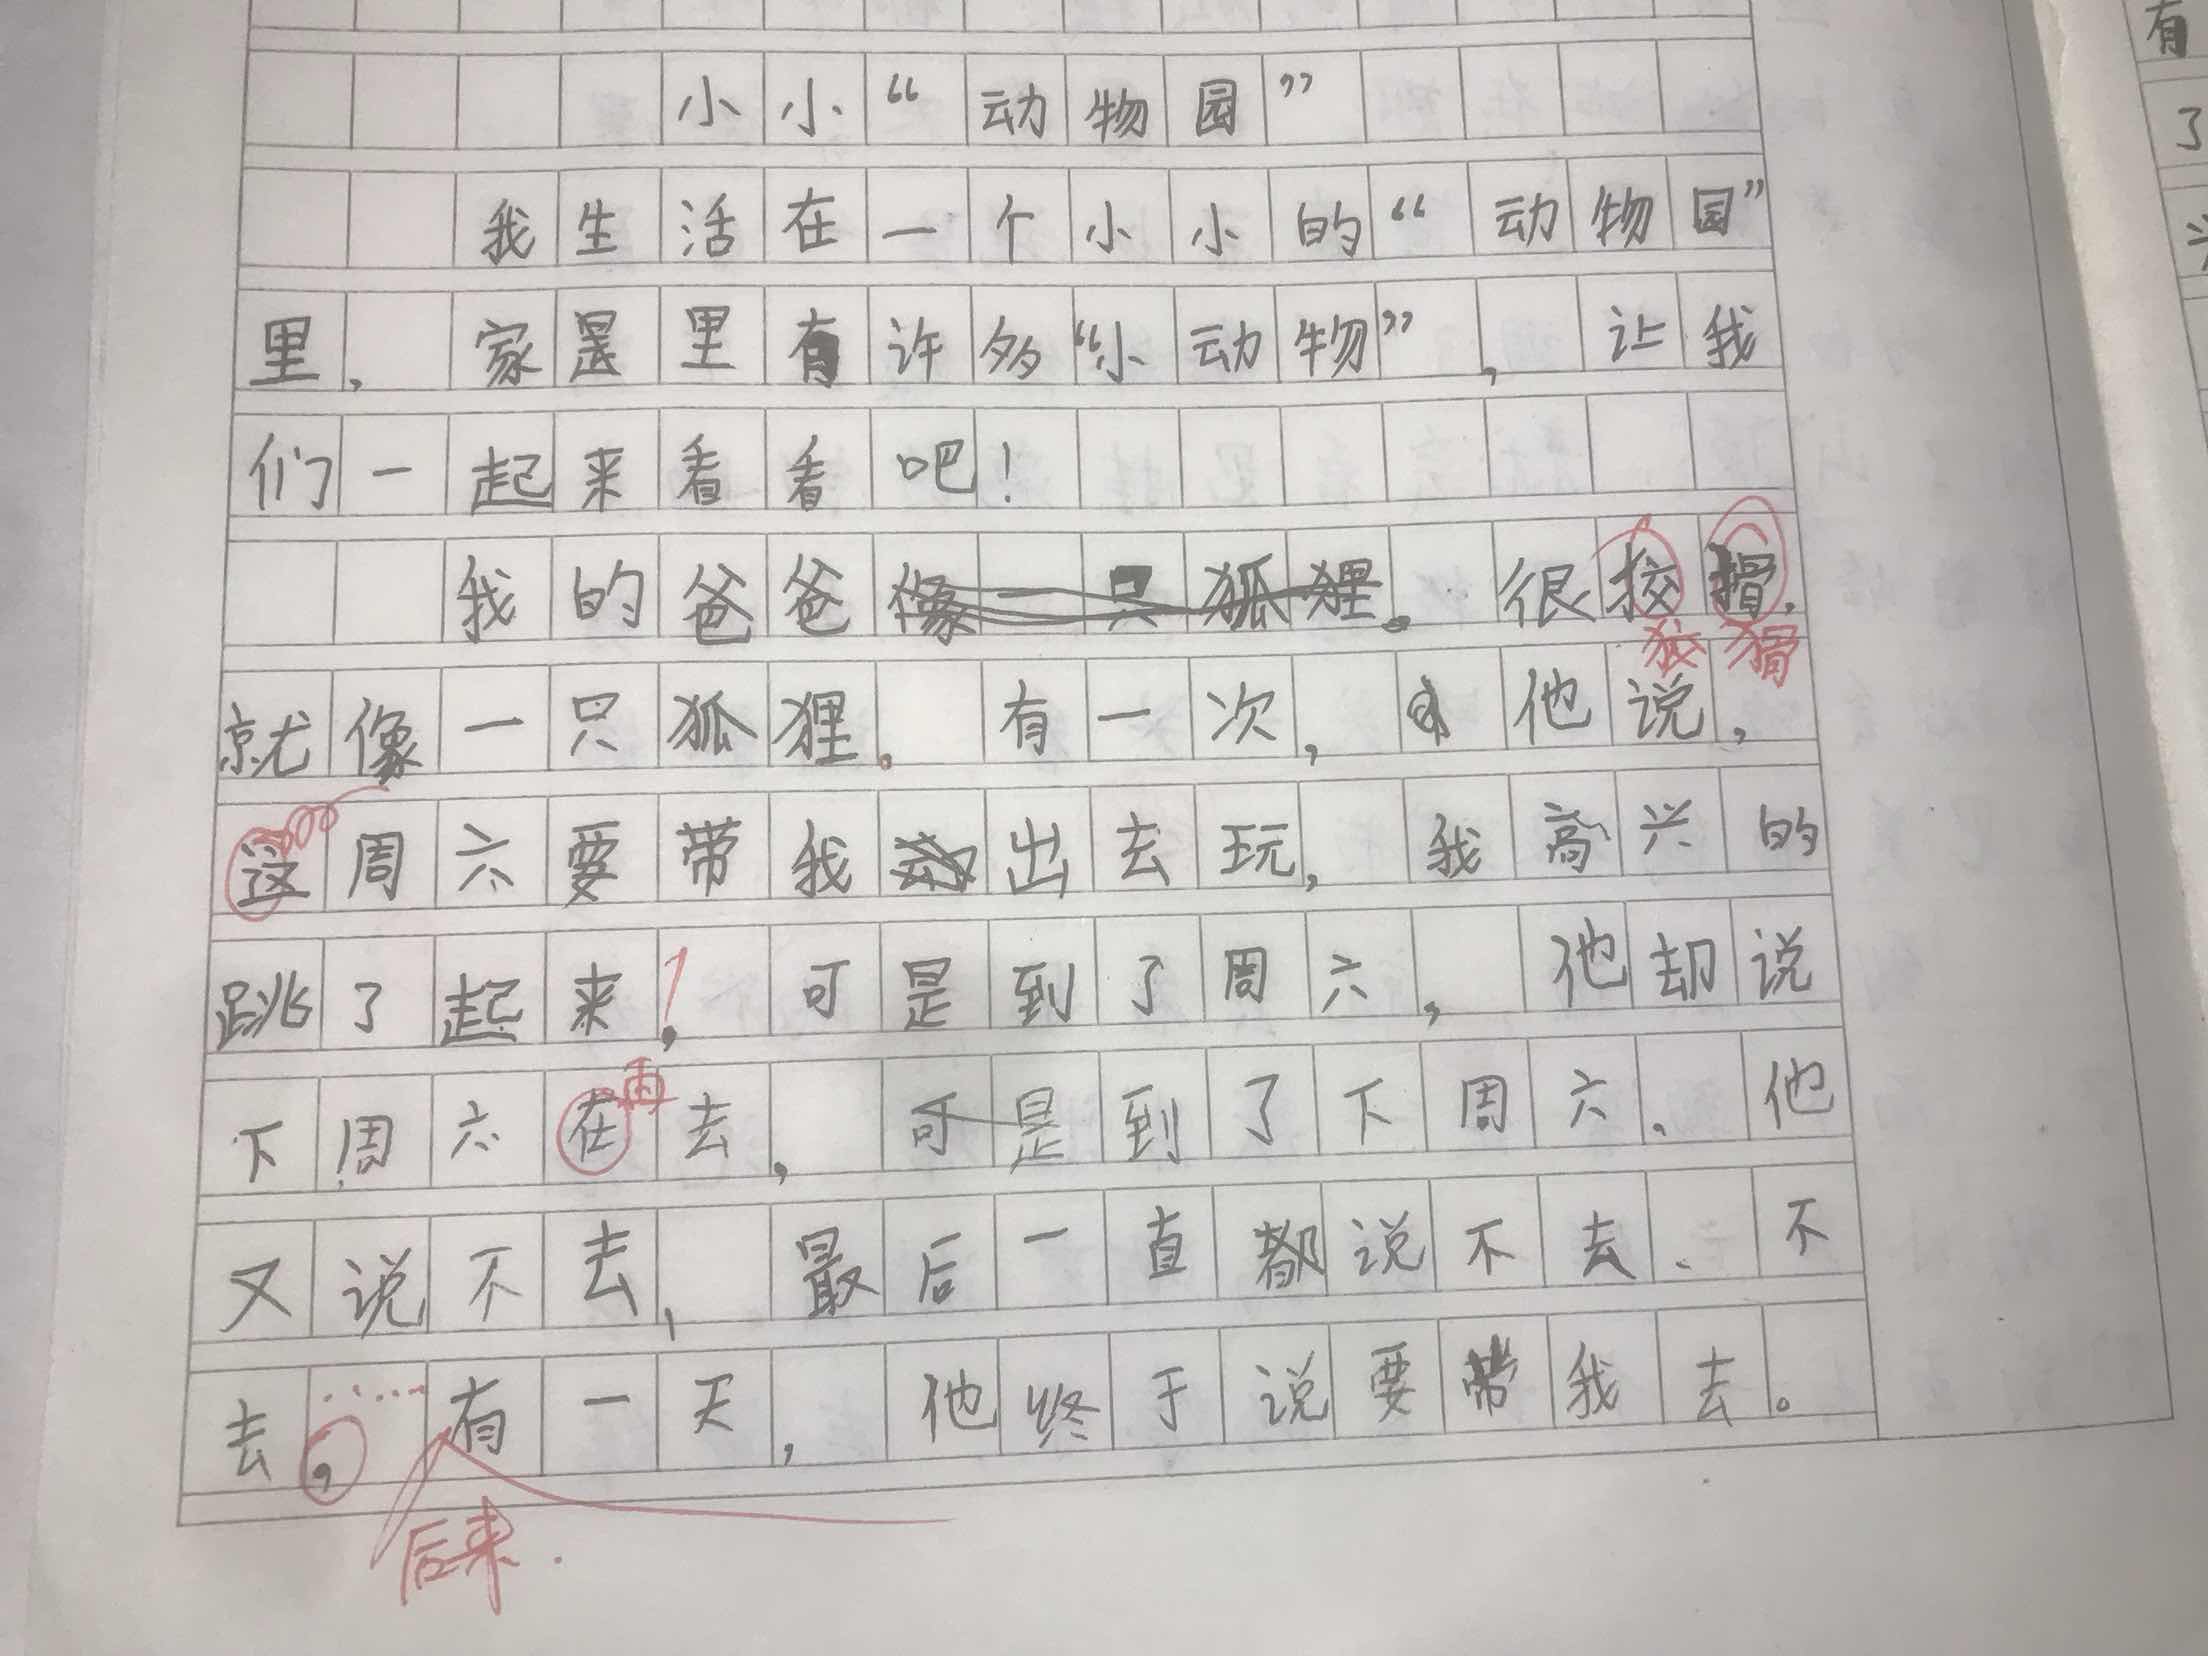 小小“动物园”
我生活在一个小小的“动物园”
里，家是里有许多“小动物”，让我
们一起来看看吧！
我的爸爸像一只狐狸。很挍搰，
狡猾
就像一只狐狸。有一次，他说，
这周六要带我出去玩，我高兴的
跳了起来！可是到了周六，他却说
再
下周六在去，可是到了下周六、他
又说不去，最后一直都说不去、不
去，……有一天，他终于说要带我去。
后来